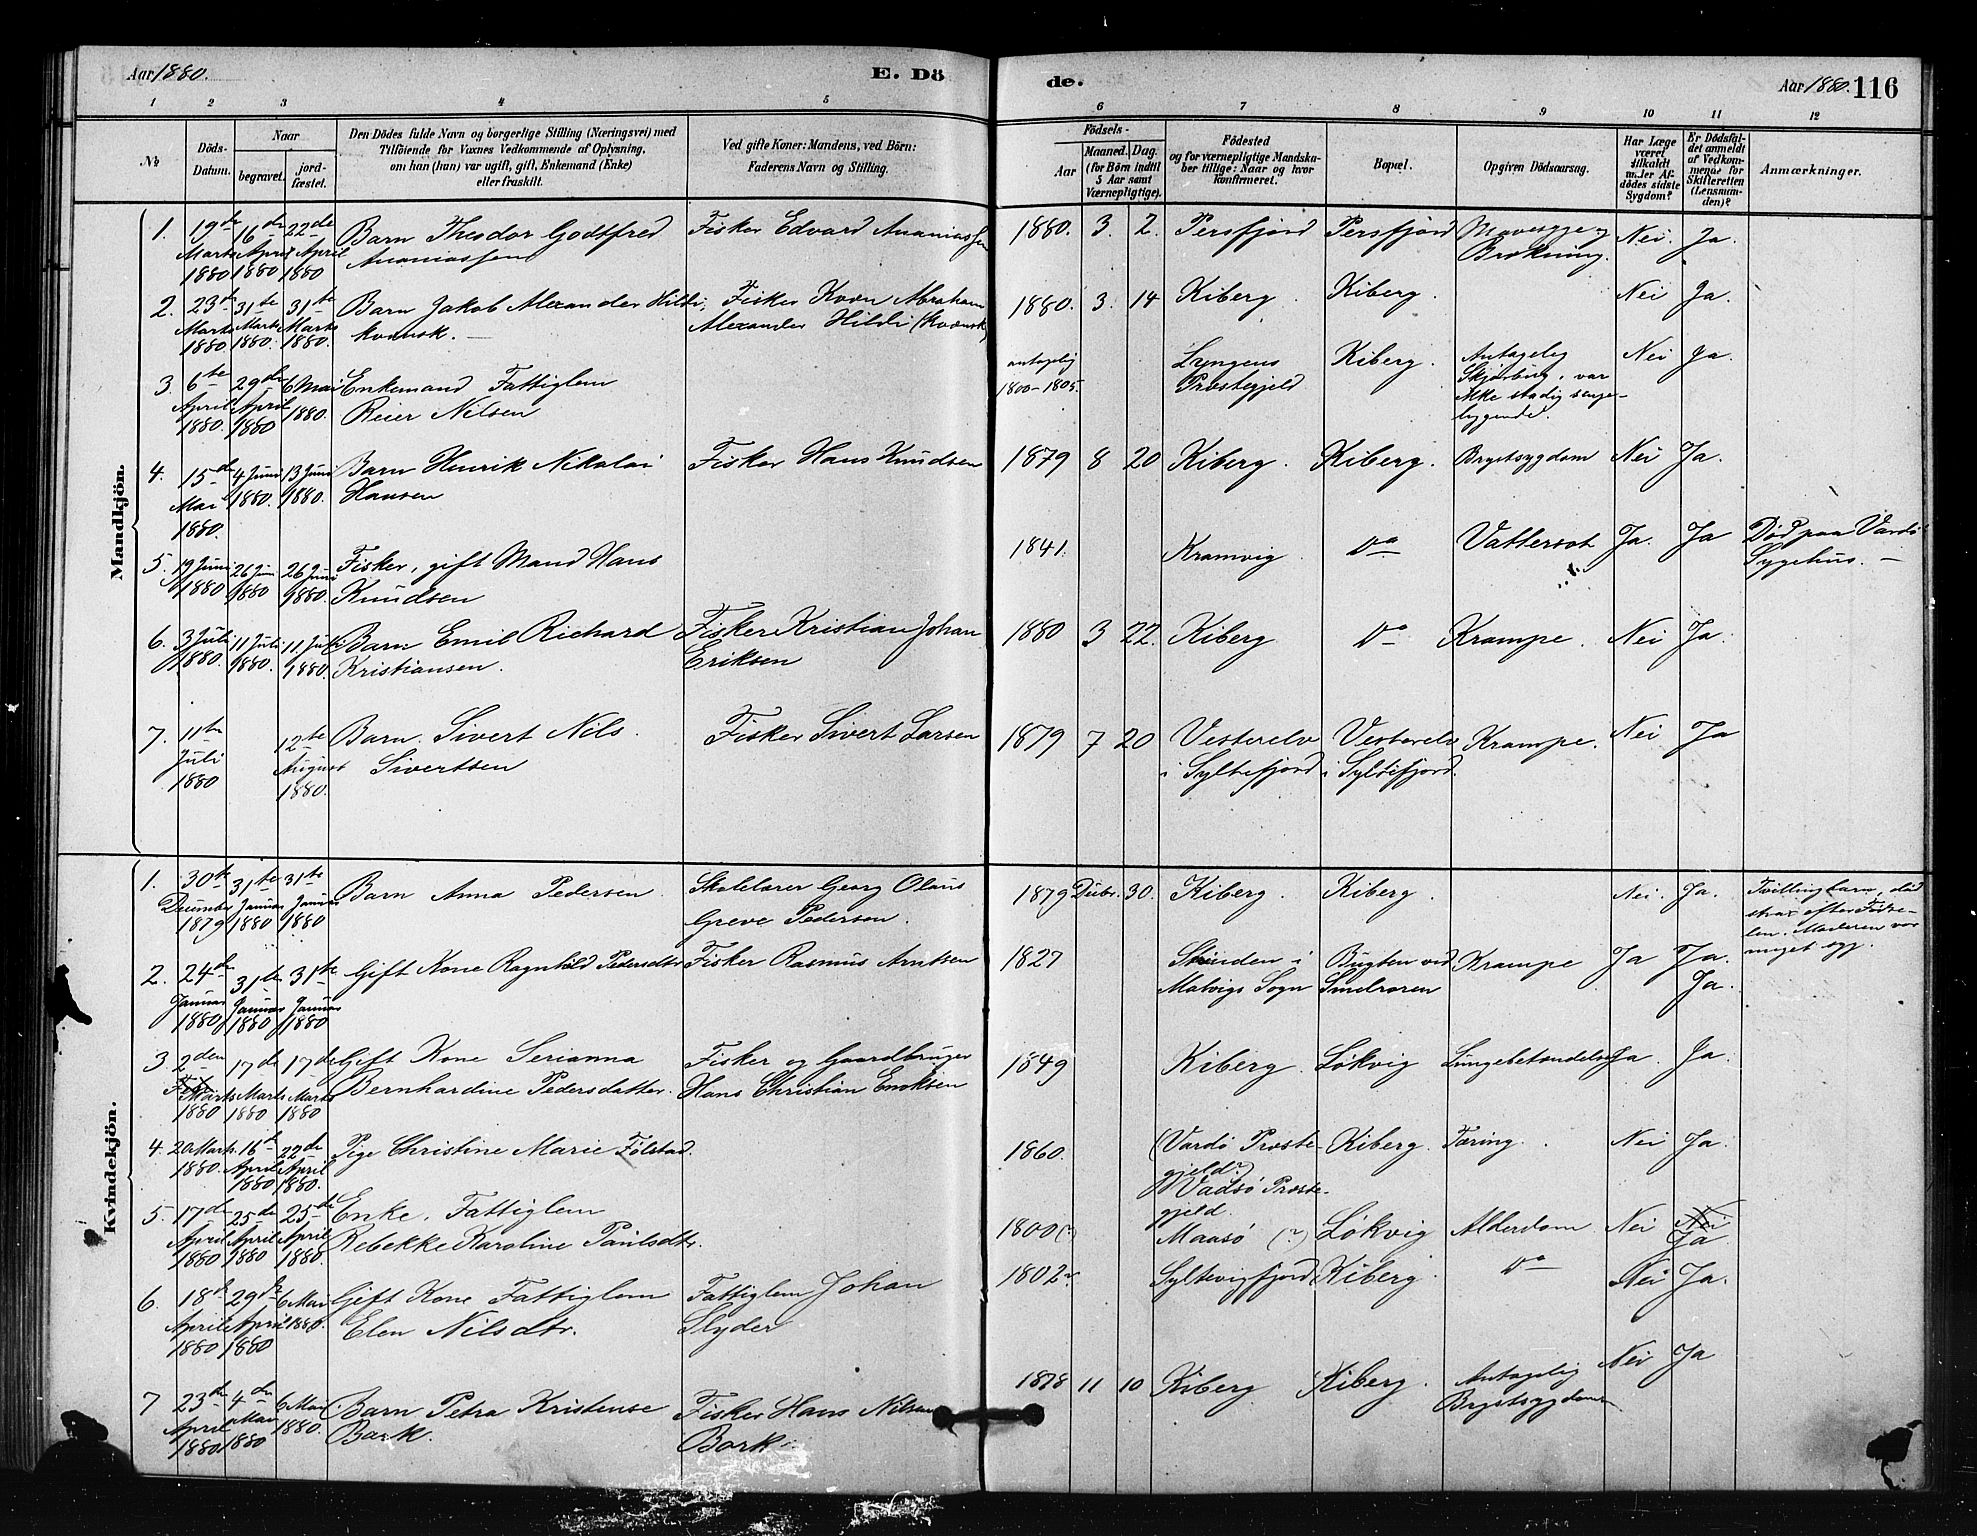 Aar 1880.
E. Dö
de.
Aar 1880. 116
1 2 3 4 5 6 7 8 9 10 11 12
№
Döds-
Datum.
Naar
begravet.
jord-
fæstet.
Den Dödes fulde Navn og borgerlige Stilling (Næringsvei) med
Tilföiende for Voxnes Vedkommende af Oplysning,
om han (hun) var ugift, gift, Enkemand (Enke)
eller fraskilt.
Ved gifte Koner: Mandens, ved Börn:
Faderens Navn og Stilling.
Födsels-
Aar
Maaned. Dag.
(for Börn indtil
5 Aar samt
Værnepligtige).
Födested
og for værnepligtige Mandska-
ber tillige: Naar og hvor
konfirmeret.
Bopæl.
Opgiven Dödsaarsag.
Har Læge
været
tilkaldt
under Af-
dödes sidste
Sygdom?
Er Dödsfal-
det anmeldt
af Vedkom-
mende for
Skifteretten
(Lensman-
den)?
Anmærkninger.
Mandkjön.
1. 19de Marts 1880 16de April 1880 22de April 1880 Barn Theodor Godtfred Ananiassen Fisker Edvard Ananiassen 1880. 3. 2. Persfjord Persfjord Brækning. Nei. Ja.
2. 23de Marts 1880. 31te Marts 1880. 31te Marts 1880. Barn Jakob Alexander Hildi, kvænsk. Fisker Kvæn Abraham Alexander Hildi (kvænsk) 1880. 3. 14 Kiberg. Kiberg. Nei Ja.
3. 6te April 1880. 29de April 1880 6 Mai 1880. Enkemand Fattiglem Reier Nilsen antagelig 1800-1805. Lyngens Præstegjeld Kiberg. Antagelig Skjørbug, var ikke stadig senge-liggende. Nei Ja.
4. 15de Mai 1880. 4 Juni 1880. 13 Juni 1880. Barn Henrik Nikolai Hansen Fisker Hans Knudsen 1879 8 20 Kiberg. Kiberg. Brystsygdom Nei Ja.
5. 19 Juni 1880 26 Juni 1880 26 Juni 1880. Fisker, gift Mand Hans Knudsen 1841. Kramvig Do Vattersot Ja. Ja Død paa Vardø Sygehus. —
6. 3 Juli 1880. 11 Juli 1880. 11. Juli 1880. Barn Emil Richard Kristiansen. Fisker Kristian Johan Eriksen 1880 3 22. Kiberg Do Krampe. Nei Ja.
7. 11te Juli 1880 12te August 1880. Barn. Sivert Nils Sivertsen Fisker Sivert Larsen 1879 7 20 Vesterelv i Syltefjord Vesterelv i Syltefjord. Krampe. Nei Ja
Kvindekjön.
1. 30te December 1879 31te Januar 1880 31te Januar 1880 Barn Anna Pedersen. Skolelærer Georg Olaus Greve Pedersen. 1879 Decbr. 30. Kiberg. Kiberg. Nei. Ja. Tvillingbarn, død strax efter Fødse-len. Moderen var meget syg.
2. 24de Januar 1880 31te Januar 1880 31te Januar 1880 Gift Kone Ragnhild Pedersdtr Fisker Rasmus Arntsen 1827 i Malvigs Sogn Bugten ved Smelroren Krampe Ja Ja. Ja.
3 2den Marts 1880 17de Marts 1880 17de Marts 1880 Gift Kone Serianna Bernhardine Pedersdatter. Fisker og Gaardbruger Hans Christian Enoksen 1849 Kiberg. Løkvig Lungebetændelse Ja. Ja.
4. 20 Marts 1880. 16de April 1880 22de April 1880. Pige Christine Marie Følstad. 1860. (Vardø Præste-gjeld?) Vadsø Præste-gjeld. Kiberg. Tæring. Nei Ja.
5. 17de April 1880 25de April 1880 25de April 1880. Enke, Fattiglem Rebekke Karoline Paulsdtr. 1800(?) Maasø (?) Løkvig Alderdom Nei Nei Ja.
6. 18de April 1880 29de April 1880 6 Mai 1880. Gift Kone Fattiglem Elen Nilsdtr. Fattiglem Johan Slyder 1802? Syltevigfjord Kiberg. Do Nei Ja.
7 23de April 1880. 4de Mai 1880 6 Mai 1880. Barn Petra Kristense Bark. Fisker Hans Nilsen Bark. 1878 11 10 Kiberg Kiberg. Antagelig Brystsygdom Nei Ja